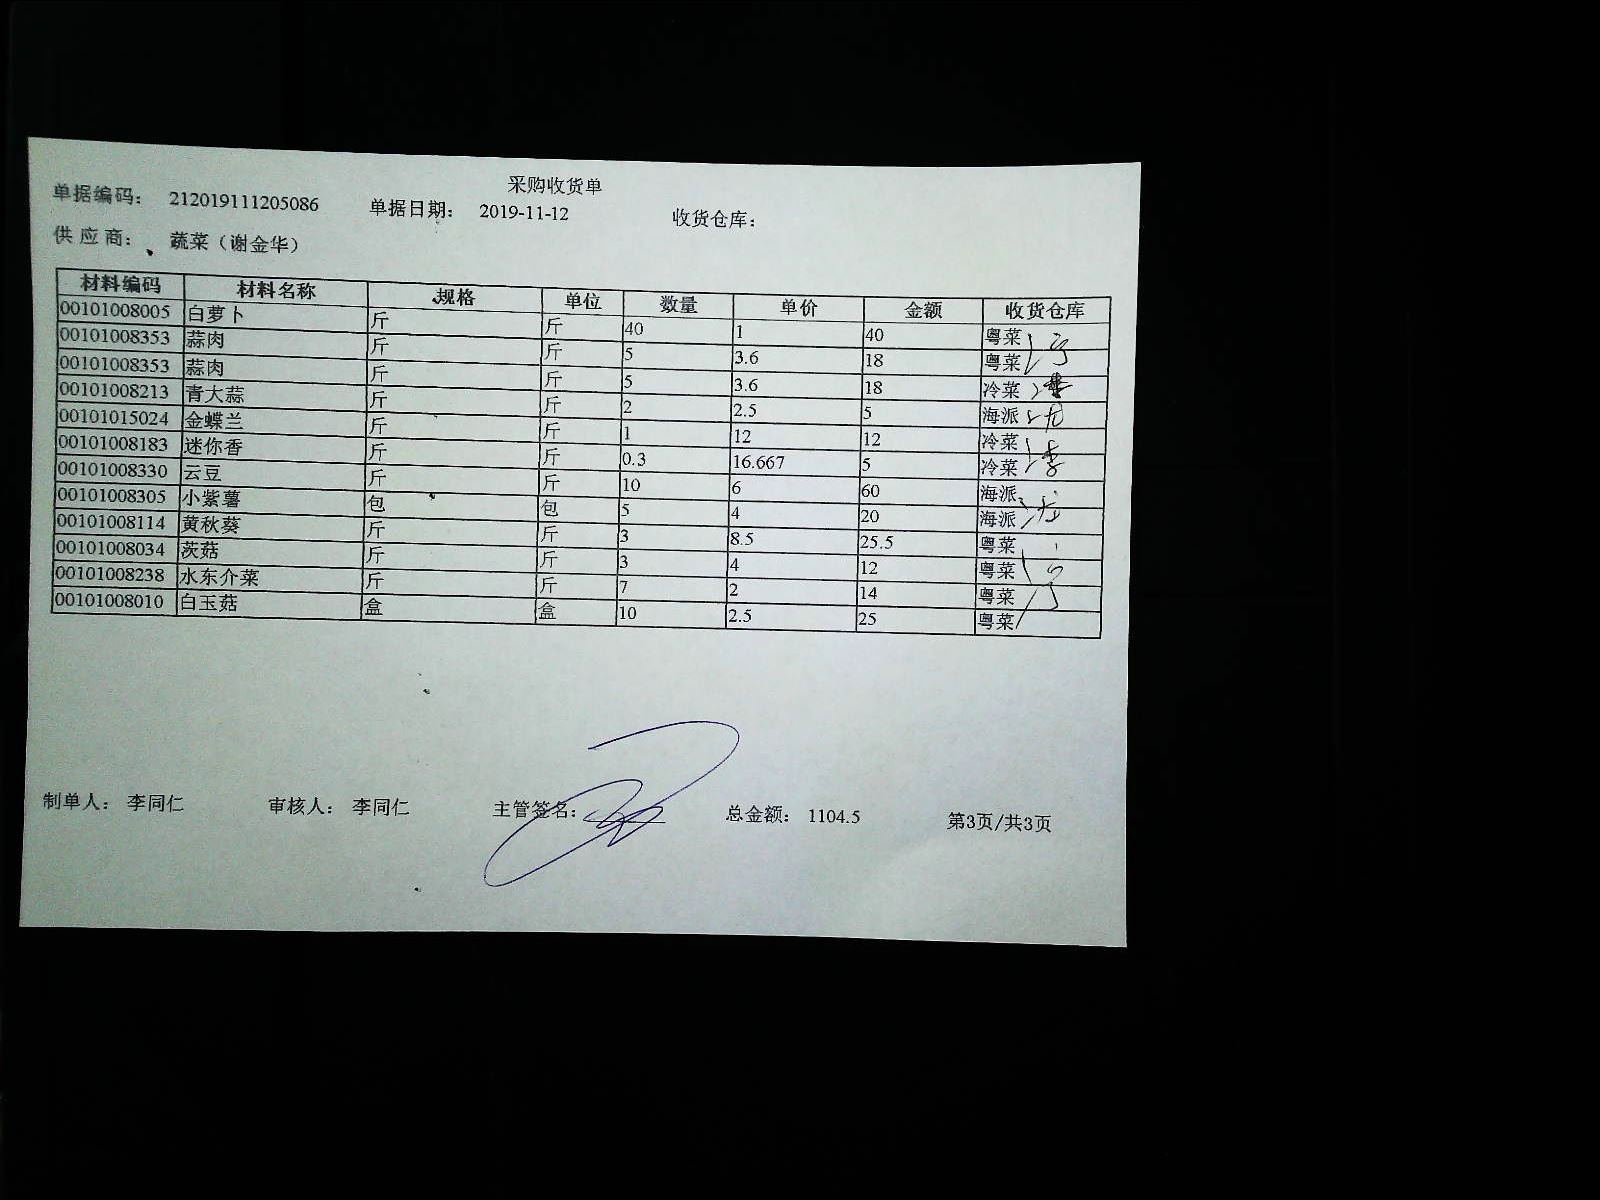 采购收货单
单据编码： 212019111205086 单据日期： 2019-11-12 收货仓库：
供应商： 蔬菜（谢金华）
材料编码 材料名称 规格 单位 数量 单价 金额 收货仓库
00101008005 白萝卜 斤 斤 40 1 40 粤菜
00101008353 蒜肉 斤 斤 5 3.6 18 粤菜
00101008353 蒜肉 斤 斤 5 3.6 18 冷菜
00101008213 青大蒜 斤 斤 2 2.5 5 海派
00101015024 金蝶兰 斤 斤 1 12 12 冷菜
00101008183 迷你香 斤 斤 0.3 16.667 5 冷菜
00101008330 云豆 斤 斤 10 6 60 海派
00101008305 小紫薯 包 包 5 4 20 海派
00101008114 黄秋葵 斤 斤 3 8.5 25.5 粤菜
00101008034 茨菇 斤 斤 3 4 12 粤菜
00101008238 水东介菜 斤 斤 7 2 14 粤菜
00101008010 白玉菇 盒 盒 10 2.5 25 粤菜
制单人： 李同仁 审核人： 李同仁 主管签名： 总金额： 1104.5 第3页/共3页